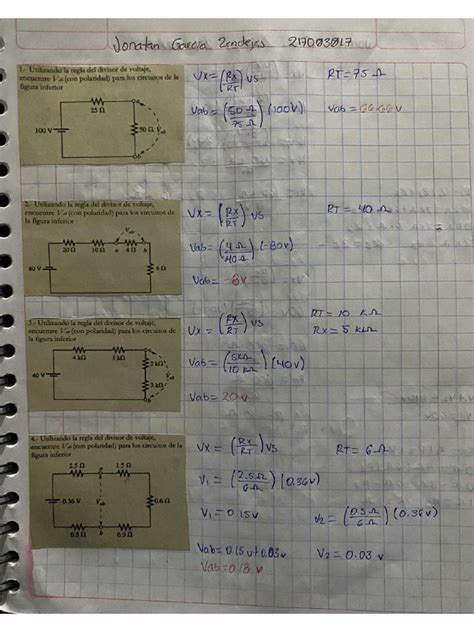 Jonatan García Zendejas 217003817
1.- Utilizando la regla del divisor de voltaje,
encuentre Vab (con polaridad) para los circuitos de la
figura inferior
25 Ω
100 V
50 Ω
Vab
a
b
Vx = (Rx/RT) Vs
RT = 75 Ω
Vab = (50 Ω/75 Ω) (100V)
Vab = 66.66V
2.- Utilizando la regla del divisor de voltaje,
encuentre Vab (con polaridad) para los circuitos de la
figura inferior
Vab
20 Ω 10 Ω a 4 Ω b
80 V
6 Ω
Vx = (Rx/RT) Vs
RT = 40 Ω
Vab = (4 Ω/40 Ω) (-80V)
Vab = -8V
3.- Utilizando la regla del divisor de voltaje,
encuentre Vab (con polaridad) para los circuitos de la
figura inferior
4 kΩ 1 kΩ
a
2 kΩ
Vab
40 V
3 kΩ
b
Vx = (Rx/RT) Vs
RT = 10 KΩ
Rx = 5 KΩ
10 KΩ
(40V)
Vab = 20 V
4.- Utilizando la regla del divisor de voltaje,
encuentre Vab (con polaridad) para los circuitos de la
figura inferior
2.5 Ω a 1.5 Ω
0.36 V
Vab
0.6 Ω
0.5 Ω b 0.9 Ω
Vx = (Rx/RT) Vs
RT = 6 Ω
V1 = (2.5 Ω/6 Ω) (0.36V)
V1 = 0.15V
V2 = (0.5 Ω/6 Ω) (0.36V)
Vab = 0.15V+0.03V
V2 = 0.03 V
Vab = 0.18 V